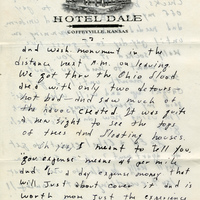 HOTEL DALE
COFFEYVILLE, KANSAS
and Wash. monument in the
distance next A.M. on leaving
We got thru the Ohio flood
area with only two detours
not bad - and saw much of
the havoc created. It was quite
a new sight to see the top
of trees and floating houses.
Oh yes, I meant to tell you,
gas expense means 4¢ per mile
and a day expense money that
will just about cover it and is
worth more Just the